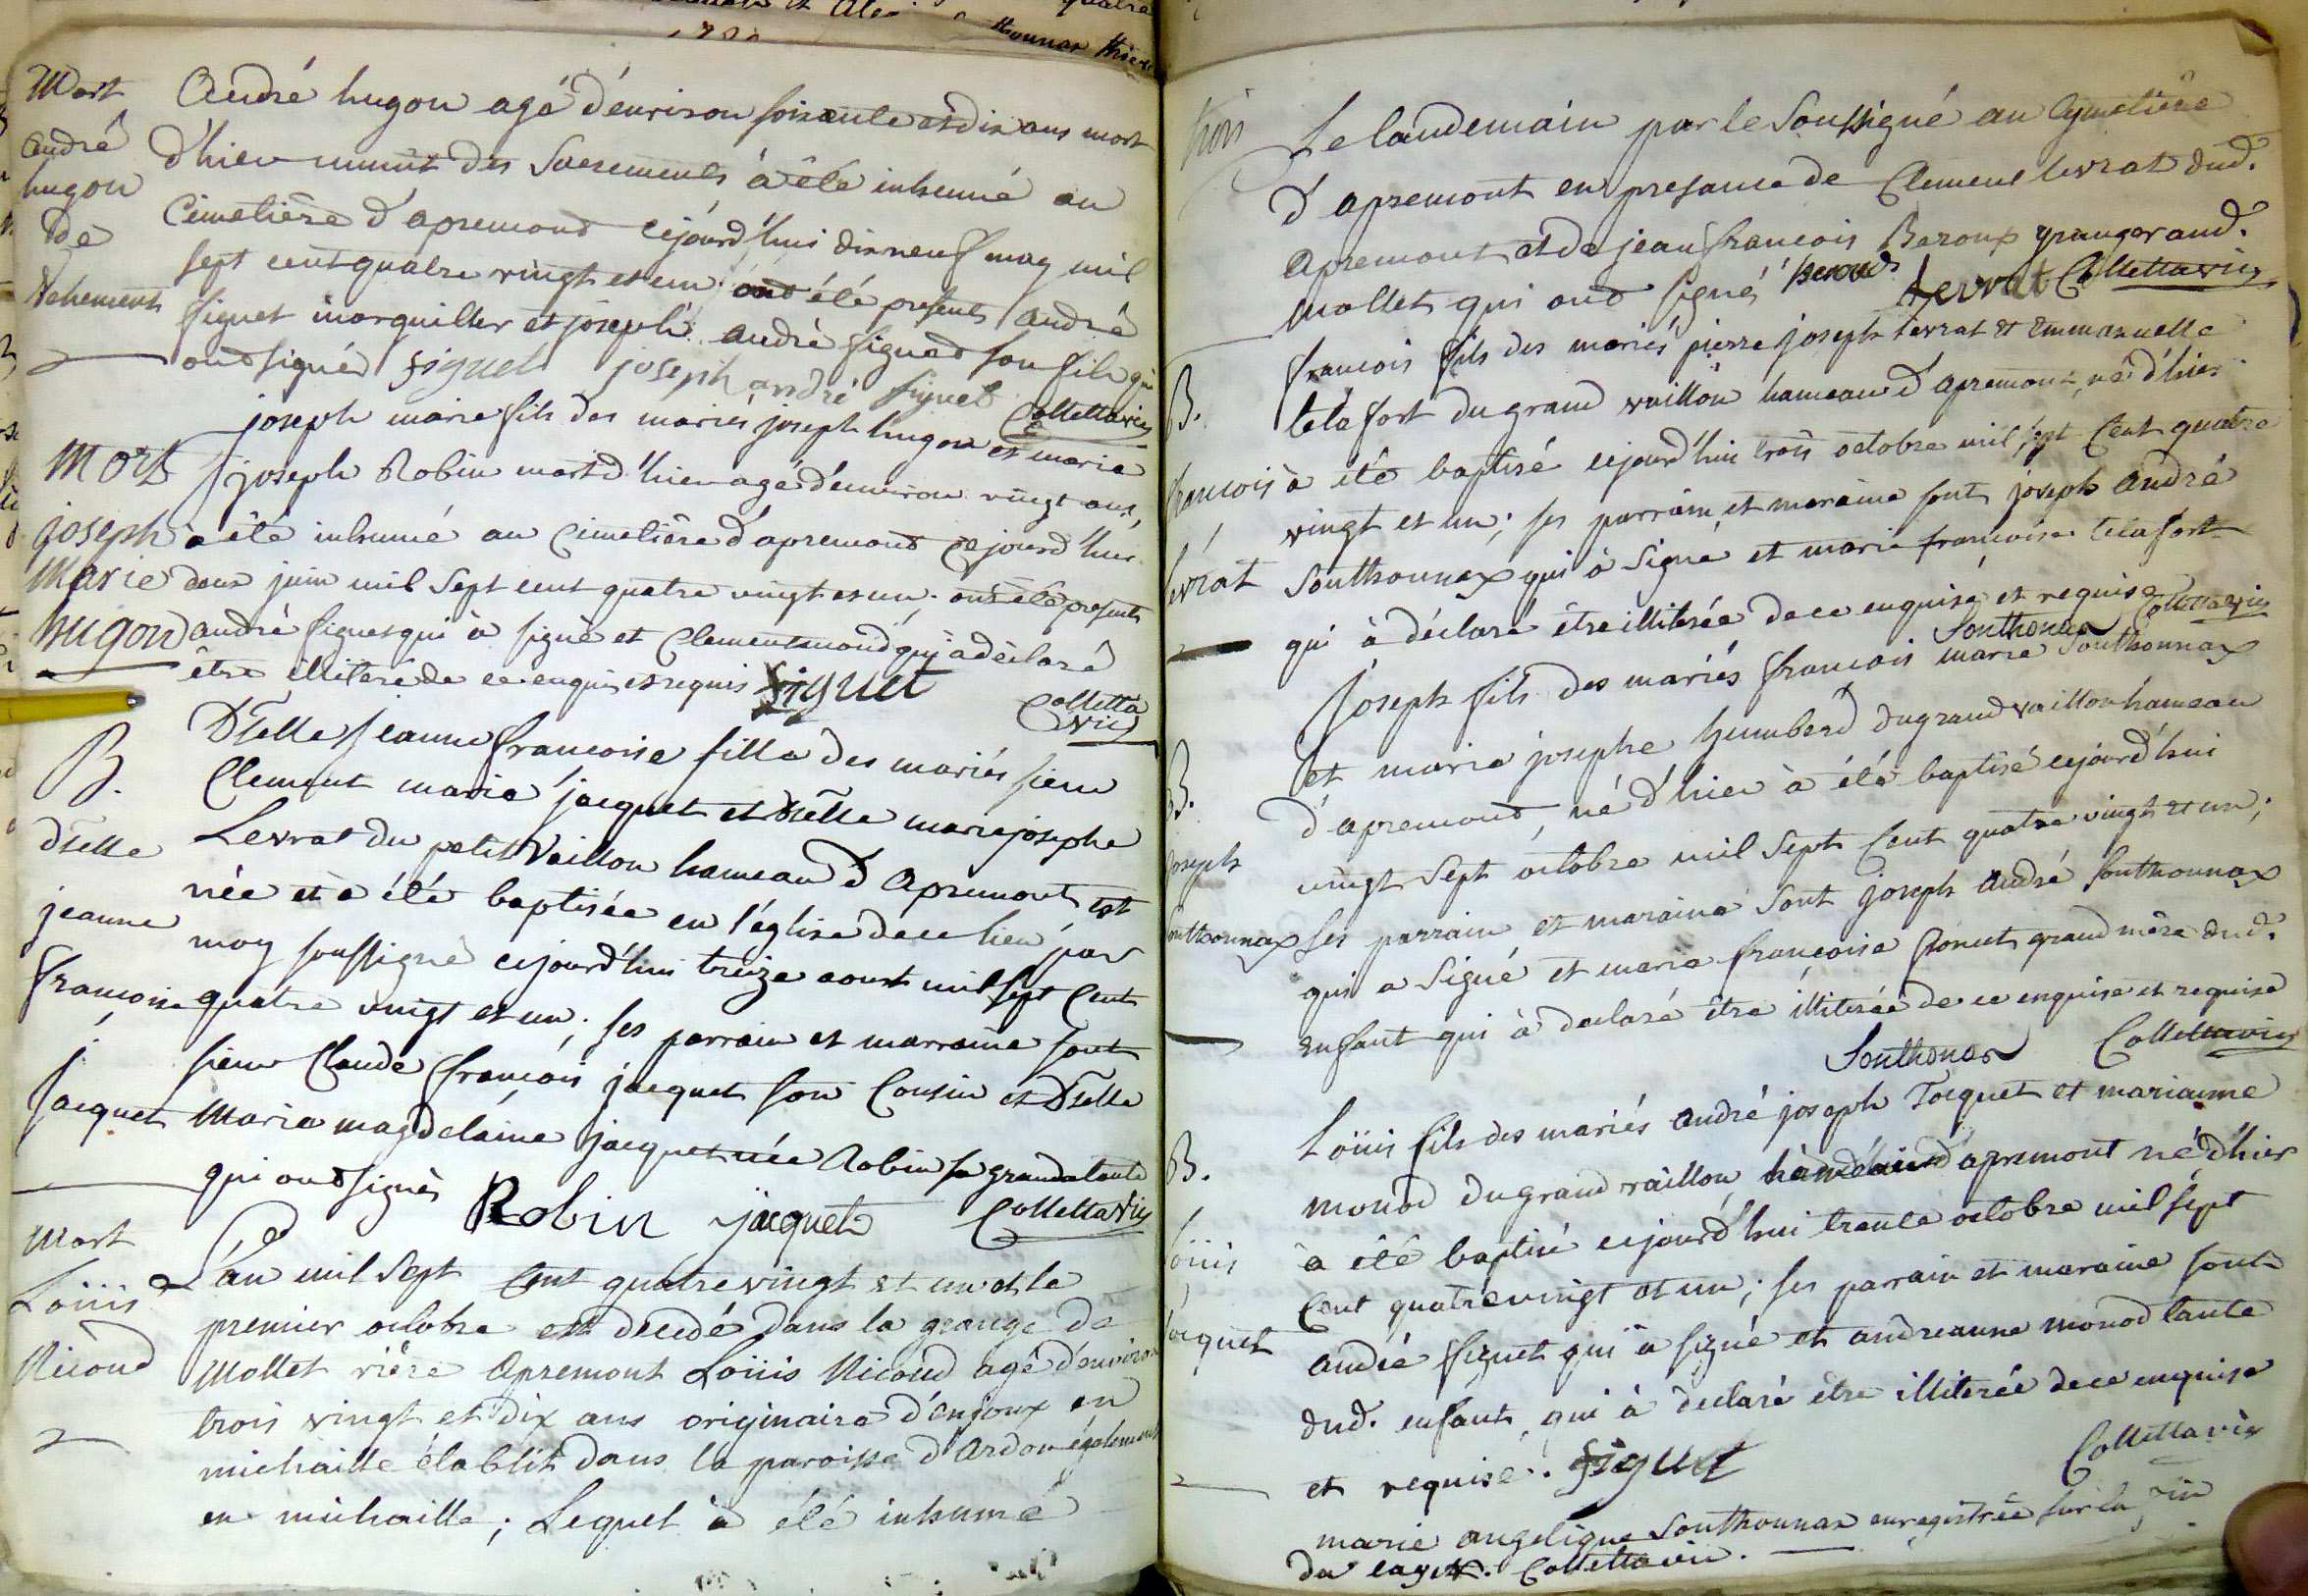 Mort
André
hugon
de
André hugon agé d'environ soixante et dix ans mort
d'hier munit des Sacrements à été inhumé au
Cimetière d'apremond cejourd'hui dix neuf may mil
sept cent quatre vingt et un ont été presents André
figuet marguiller et joseph andré figued son fils qui
ont signés figuet joseph andré figuet
Colletta vic
Mort
joseph
Marie
hugon
joseph marie fils des mariés joseph hugon et marie
joseph Robin mort d'hier agé d'environ vingt ans,
à été inhumé au Cimetière d'apremond cejourd'hui
deux juin mil Sept cent quatre vingt et un; ont été presents
andré figuet qui à signé et Clement monod qui à déclaré
être illiteré de ce enquis et requis figuet
Colletta
vic
B.
dselle
jeanne
francoise
jacquet
Dselle jeanne francoise fille des mariés sieur
Clement marie jacquet et dselle marie josephe
Levrat du petit Vaillon hameau d'Apremont est
née et a été baptisée en l'église de ce lieu par
moy soussigné cejourd'hui treize aoust mil sept Cent
quatre vingt et un; ses parrain et marraine sont
sieur Claude françois jacquet son Cousin et Dselle
Marie magdelaine jacquet née Robin sa grande tante
qui ont signés Robin jacquet Colletta vic
Mort
Loüis
Nicoud
L'an mil Sept Cent quatre vingt et un et le
premier octobre est decedé dans la grange de
Mollet rière Apremont Loüis Nicoud agé d'environ
trois vingt et dix ans originaire d'enjoux en
michaille établit dans la paroisse d'Ardon également
en michaille; Lequel à été inhumé
trois
Le landemain par le Soussigné au Cymetière
d'apremont en presance de Clement levrat dud.
Apremont et de jean francois Beroux granger aud.
mollet qui ond signés beroud Levrat Colletta vic
B.
francois
levrat
francois fils des mariés pierre joseph levrat et Emmanuelle
telafort du grand vaillon hameau d'apremont, né d'hier
à été baptisé cejourd'hui trois octobre mil sept Cent quatre
vingt et un; ses parrain et maraine sont joseph André
Southonnax qui à Signé et marie francoise telafort
qui à déclaré être illiterée de ce enquise et requise
Southonax Colletta vic
B.
joseph
Southonnax
Joseph fils des mariés francois marie Southonnax
et marie josephe humberd du grand vaillon hameau
d'apremond, né d'hier à été baptisé cejourd'hui
vingt Sept octobre mil Sept Cent quatre vingt et un;
ses parrain et maraine Sont joseph André Southonnax
qui a Signé et marie françoise grand mère dud.
enfant qui à declaré être illiterée de ce enquise et requise
Southonax Colletta vic
B.
Loüis
jacquet
Loüis fils des mariés André joseph Jacquet et marianne
monod du grand vaillon hameau d'apremont né d'hier
à été baptisé cejourd'hui trente octobre mil sept
Cent quatre vingt et un; ses parrain et maraine sont
André figuet qui à signé et andreanne monod tante
dud. enfant, qui à declaré être illiterée de ce enquise
et requise. figuet Colletta vic
marie angelique Southonnax enregistrée sur la fin
du cayer. Colletta vic.